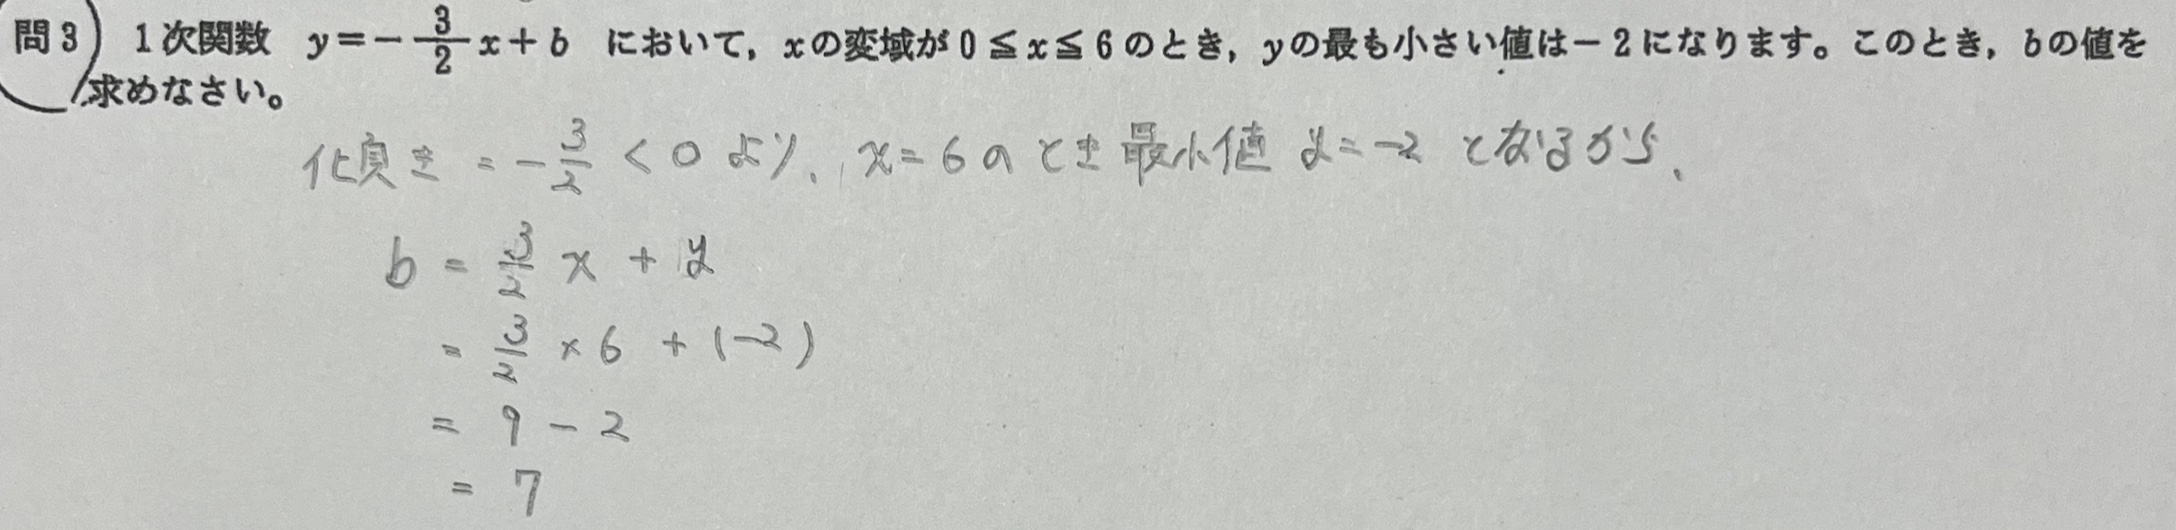 問3 1次関数 y=-3/2x+b において,xの変域が0≦x≦6のとき,yの最も小さい値は-2になります。このとき,bの値を
求めなさい。
傾き = -3/2 < 0 より、x=6のとき最小値 y=-2 となるから、
b = 3/2 x + y
= 3/2 × 6 + (-2)
= 9 - 2
= 7